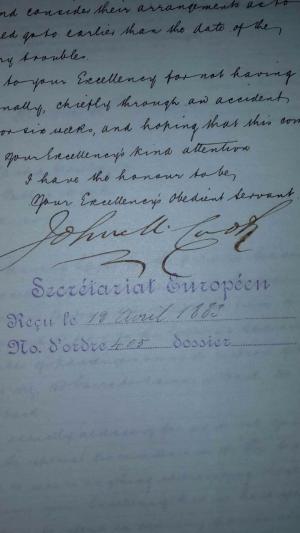 and consider their arrangements as to
ed go to earlier than the date of the
ry troubles.
to your Excellency for not having
nally, chiefly through an accident
or six weeks, and hoping that this com
Your Excellency's kind attention
I have the honour to be,
Your Excellency's Obedient Servant
John M. Cook
Secrétariat Européen
Reçu le 19 Avril 1883
No. d'ordre 405 dossier